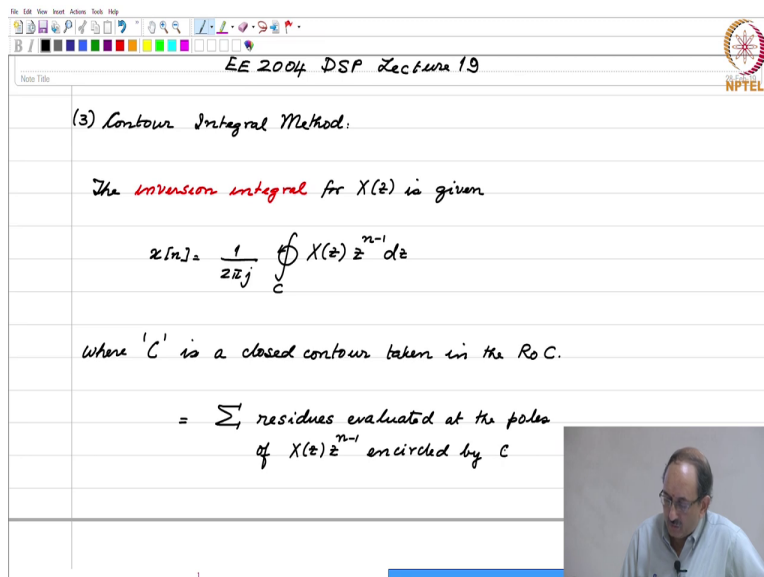 File Edit View Insert Actions Tools Help
B I
EE 2004 DSP Lecture 19
Note Title
NPTEL
(3) Contour Integral Method:
The inversion integral for X(z) is given
x[n] = 1/2πj ∮_C X(z) z^{n-1} dz
where 'C' is a closed contour taken in the RoC.
= Σ residues evaluated at the poles
of X(z) z^{n-1} encircled by C
1